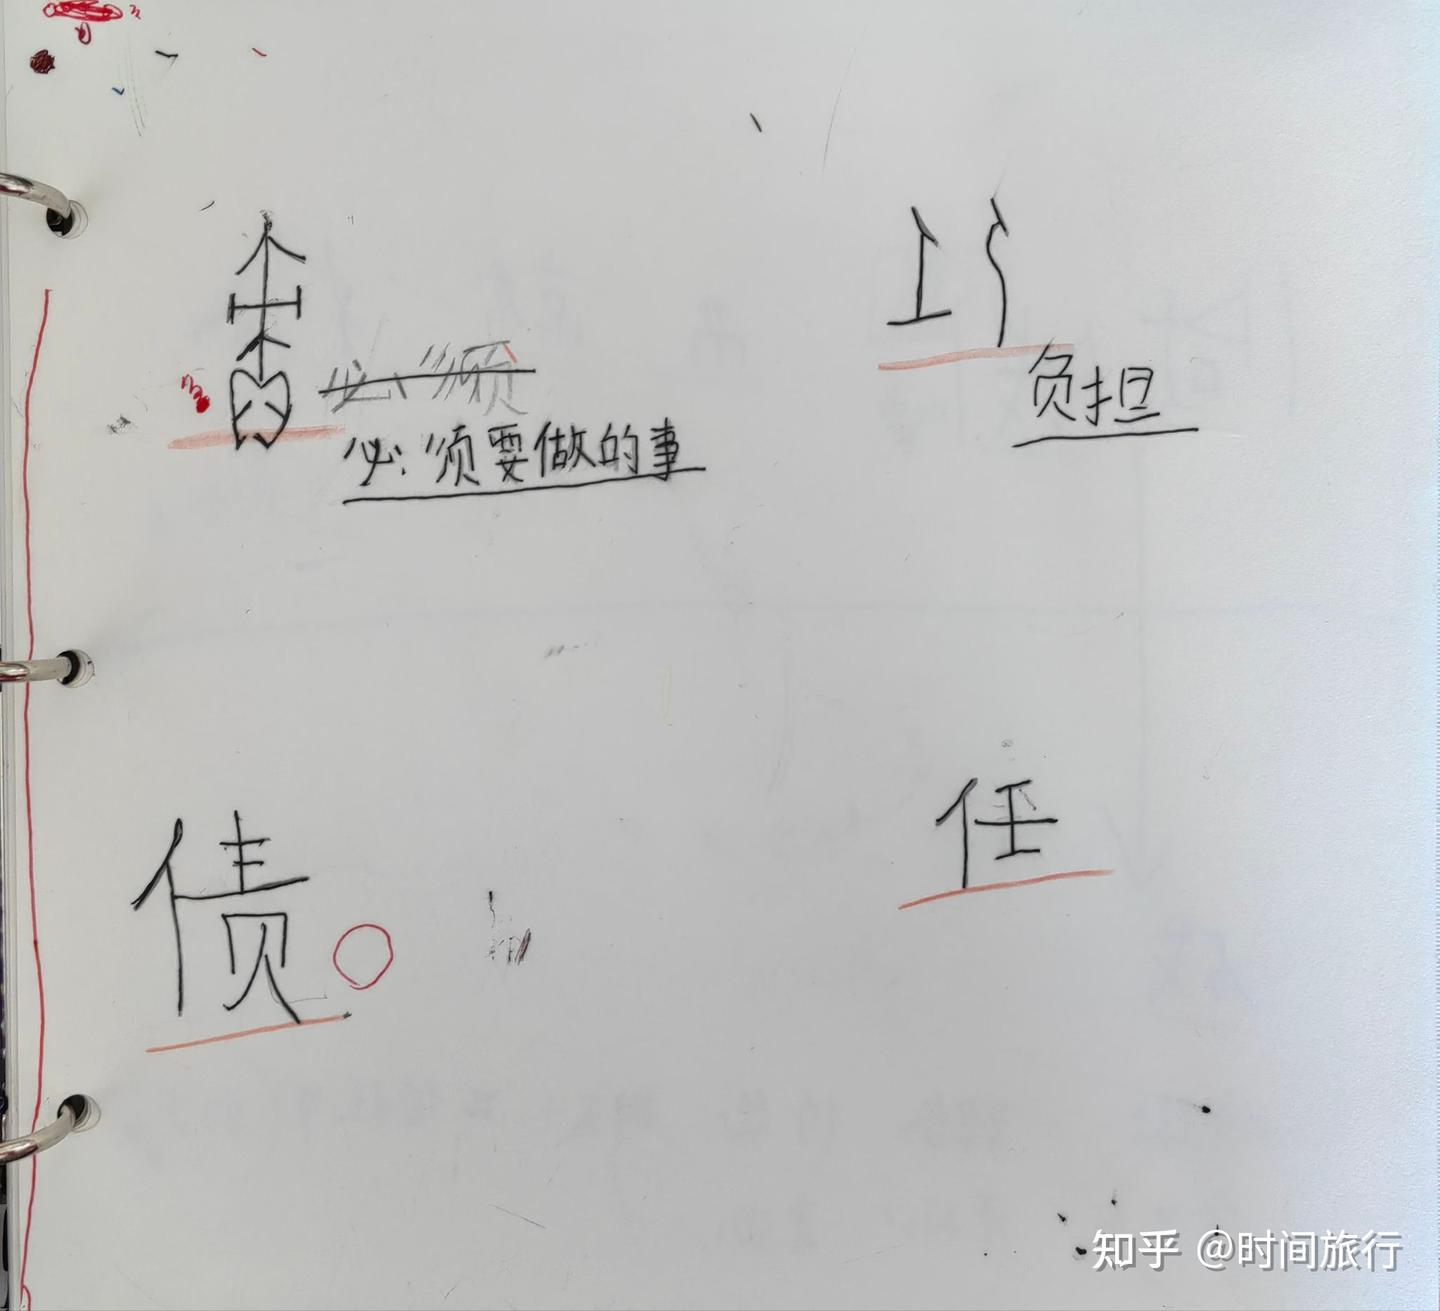 必须
必须要做的事
负担
债
任
知乎 @时间旅行